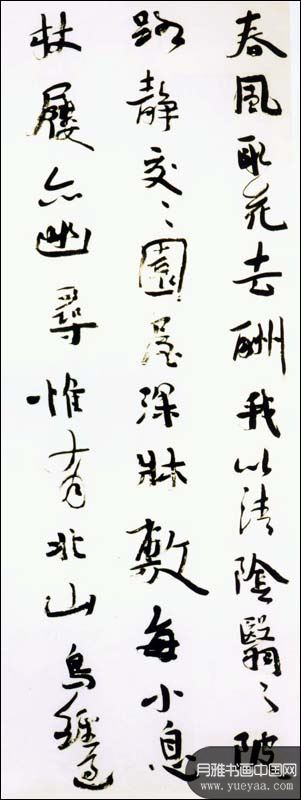 春風取花去酬我以清陰翳〻陂
路靜交〻園屋深牀敷每小息
杖屨亦幽尋惟有北山鳥經過
月雅书画中国网
www.yueyaa.com